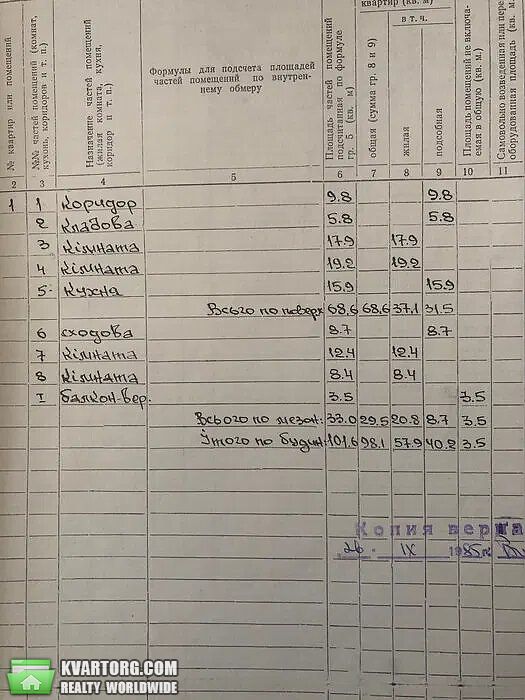 № квартир или помещений
№№ частей помещений (комнат, кухонь, коридоров и т. п.)
Назначение частей помещений (жилая комната, кухня, коридор и т. п.)
Формулы для подсчета площадей частей помещений по внутреннему обмеру
Площадь частей помещений подсчитанная по формуле гр. 5 (кв. м)
квартир (кв. м)
общая (сумма гр. 8 и 9)
в т. ч.
жилая
подсобная
Площадь помещений не включаемая в общую (кв. м)
Самовольно возведенная или пере оборудованная площадь (кв. м)
2 3 4 5 6 7 8 9 10 11
1 1 Коридор 9.8 9.8
2 Кладова 5.8 5.8
3 Кімната 17.9 17.9
4 Кімната 19.2 19.2
5 Кухна 15.9 15.9
Всього по поверх 68,6 68,6 37.1 31.5
6 сходова 8.7 8.7
7 Кімната 12.4 12.4
8 Кімната 8.4 8.4
I балкон-вер. 3.5 3.5
Всього по мезон: 33.0 29.5 20.8 8.7 3.5
Ітого по будин: 101.6 98.1 57.9 40.2 3.5
Копия верна
26 IX 1985
KVARTORG.COM
REALTY WORLDWIDE